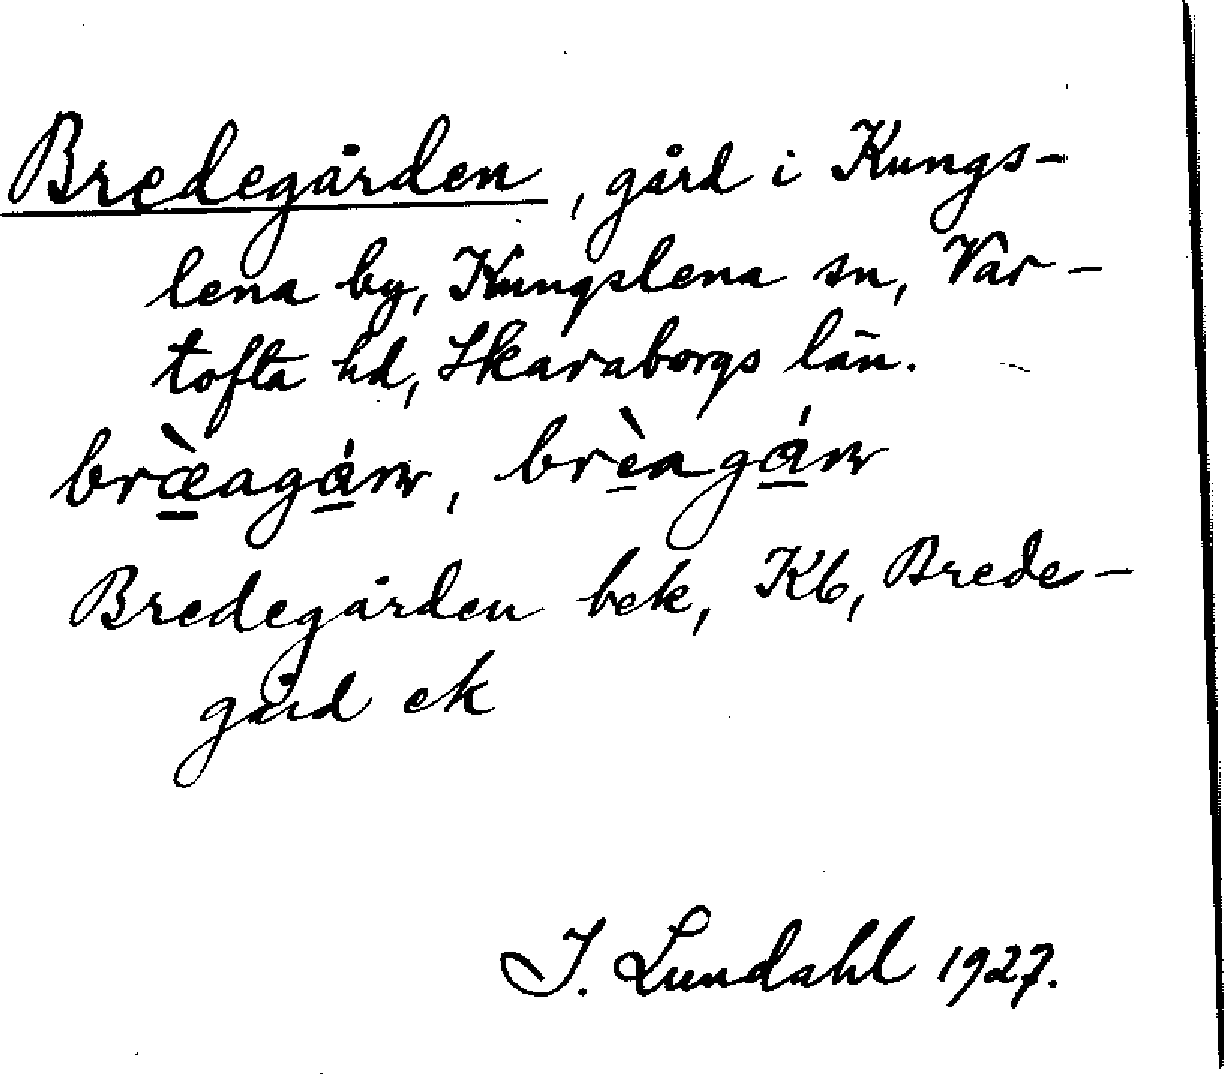 Bredegården, gård i Kungs-
lena by, Kungslena sn, Var-
tofta hd, Skaraborgs län.
bræ̀agán, brèagán
Bredegården bek, Kb, Brede-
gård ek
I. Lundahl 1927.